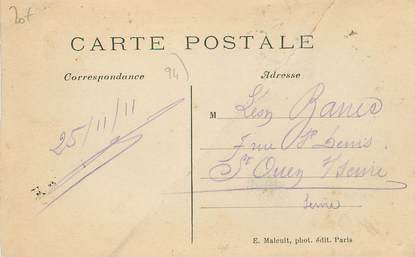 20f
CARTE POSTALE
Correspondance
Adresse
94
25/11/11
M Léon
7 rue St Denis
St Ouen s/Seine
Seine
E. Malcuit, phot. édit. Paris